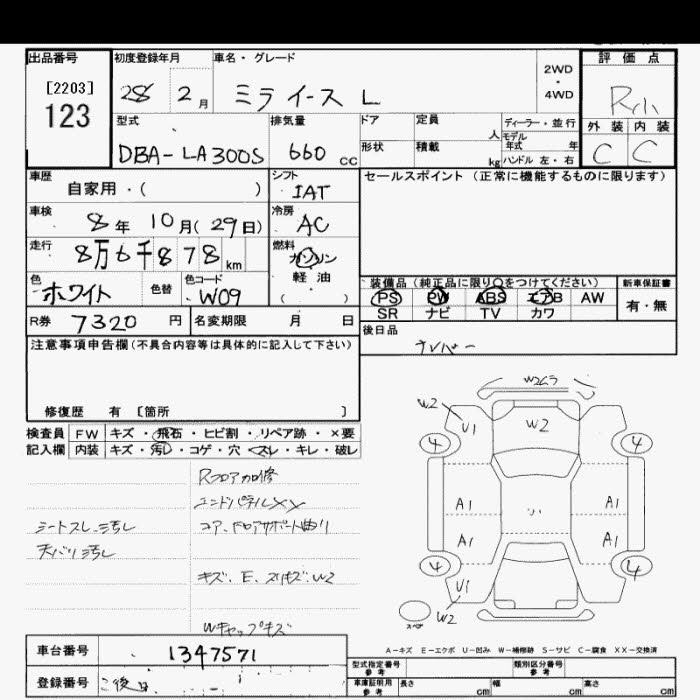 出品番号 初度登録年月 車名・グレード 評価点
[2203] 123
28 2月 ミライース L 2WD・4WD R小
型式 排気量 ドア 定員 人 ディーラー・並行
モデル年式 年
DBA-LA300S 660 cc 形状 積載 kg ハンドル 左・右
外装 内装
C C
車歴 自家用・( ) シフト IAT セールスポイント(正常に機能するものに限ります)
車検 8年 10月(29日) 冷房 AC
走行 8万6千878 km 燃料 ガソリン
軽油
( )
色 ホワイト 色替 色コード W09
装備品(純正品に限り○をつけてください) 新車保証書
PS PW ABS エアB AW 有・無
SR ナビ TV カワ
R券 7320円 名変期限 月 日 後日品
注意事項申告欄(不具合内容等は具体的に記入して下さい)
ナンバー
修復歴 有 〔箇所 〕
検査員 FW キズ・飛石・ヒビ割・リペア跡・×要
記入欄 内装 キズ・汚れ・コゲ・穴・スレ・キレ・破レ
Rフロア加修
エンドパネルXX
シートスレ、汚し コア、ドロアサポート曲り
天バリ汚し
キズ、E、スリキズ、W2
Wキャップキズ
W2 W2 U1 4 4
A1 A1
A1 A1
4 4 U1 W2
スペア
A-キズ E-エクボ U-凹み W-補修跡 S-サビ C-腐食 XX-交換済
車台番号 1347571
登録番号 後日
型式指定番号 参考 類別区分番号 参考
車庫証明用 参考 長さ cm 幅 cm 高さ cm